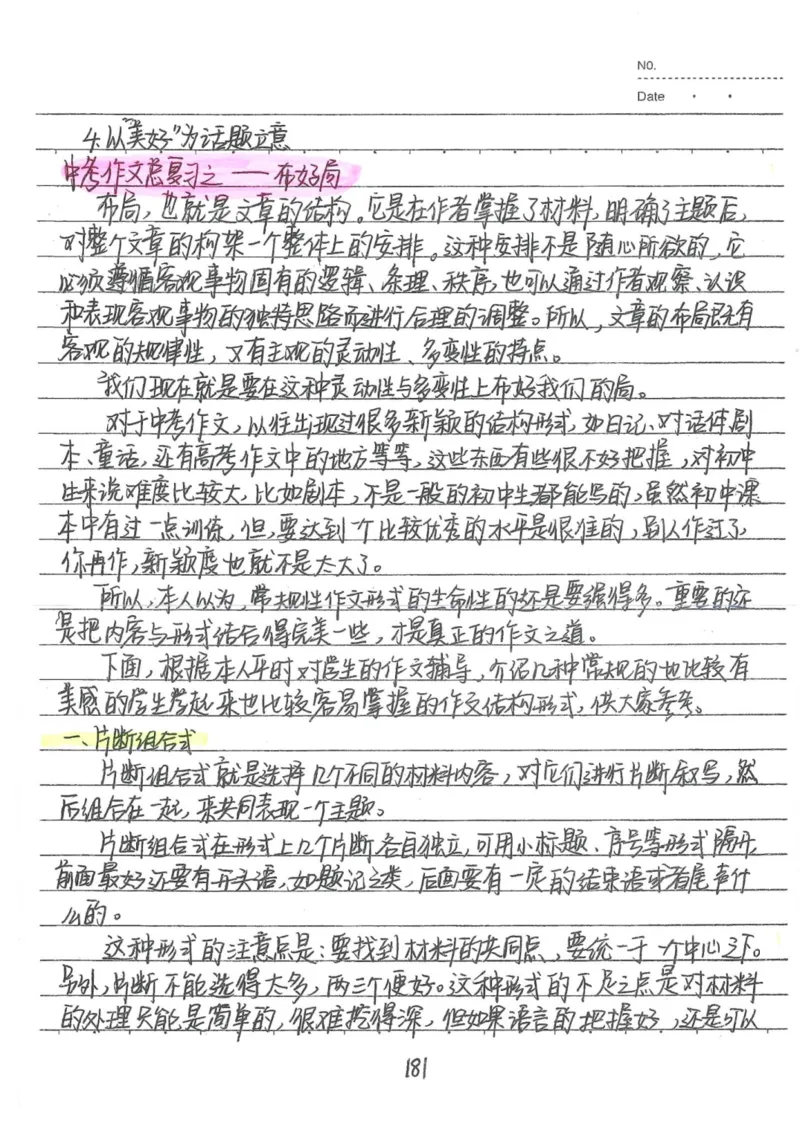 NO.
Date
4.以"美好"为话题立意
中考作文总复习之 —— 布好局
布局,也就是文章的结构。它是在作者掌握了材料,明确了主题后,
对整个文章的构架一个整体上的安排。这种安排不是随心所欲的,它
必须遵循客观事物固有的逻辑、条理、秩序,也可以通过作者观察、认识
和表现客观事物的独特思路而进行合理的调整。所以,文章的布局既有
客观的规律性,又有主观的灵动性、多变性的特点。
我们现在就是要在这种灵动性与多变性上布好我们的局。
对于中考作文,以往出现过很多新颖的结构形式,如日记、对话体剧
本、童话,还有高考作文中的地方等等,这些东西有些很不好把握,对初中
生来说难度比较大,比如剧本,不是一般的初中生都能写的,虽然初中课
本中有过一点训练,但,要达到一个比较优秀的水平是很难的,别人作过了,
你再作,新颖度也就不是太大了。
所以,本人以为,常规性作文形式的生命性的还是要强得多。重要的还
是把内容与形式结合得完美一些,才是真正的作文之道。
下面,根据本人平时对学生的作文辅导,介绍几种常规的也比较有
美感的学生学起来也比较容易掌握的作文结构形式,供大家参考。
一、片断组合式
片断组合式就是选择几个不同的材料内容,对它们进行片断叙写,然
后组合在一起,来共同表现一个主题。
片断组合式在形式上几个片断各自独立,可用小标题、序号等形式隔开,
前面最好还要有开头语,如题记之类,后面要有一定的结束语或者尾声什
么的。
这种形式的注意点是:要找到材料的共同点,要统一于一个中心之下。
另外,片断不能选得太多,两三个便好。这种形式的不足之点是对材料
的处理只能是简单的,很难挖得深,但如果语言的把握好,还是可以
181